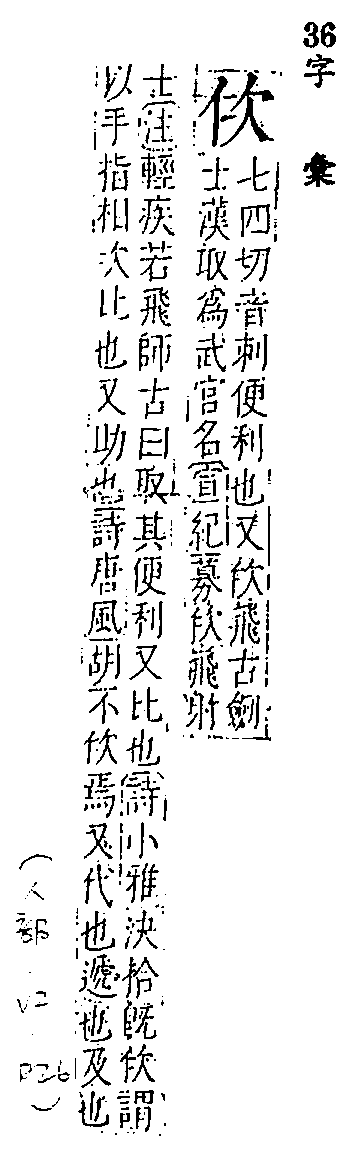 36
字彙
佽
七四切音刺便利也又佽飛古劍
士漢取爲武官名宣紀募佽飛射
士注輕疾若飛師古曰取其便利又比也詩小雅決拾旣佽謂
以手指相次比也又助也詩唐風胡不佽焉又代也遞也及也
(人部.V2.P26)